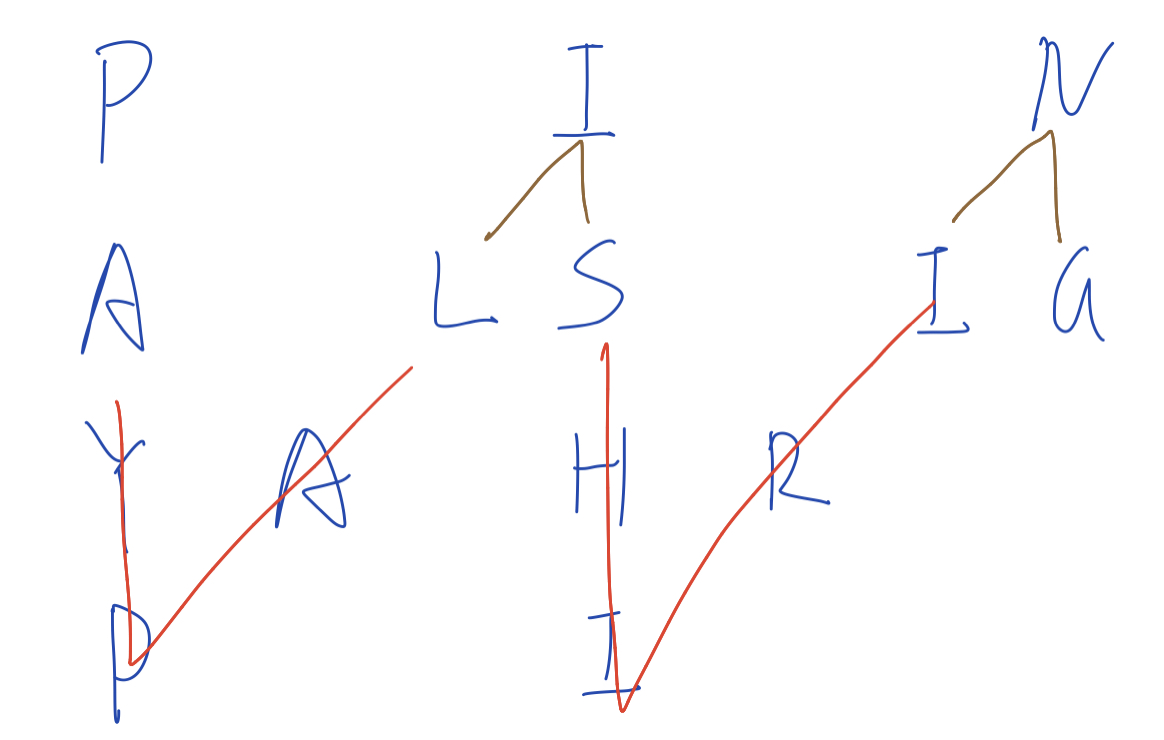 P I N
A L S I a
Y A H R
P I